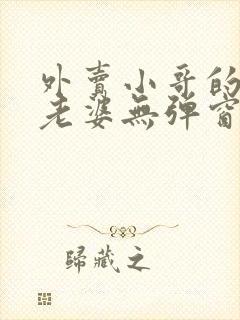 外賣小哥的
老婆無彈窗
歸藏之